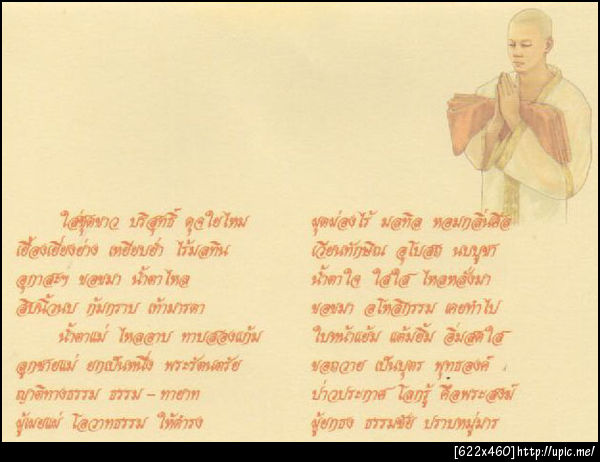 ใส่ชุดขาว บริสุทธิ์ ดุจใยไหม ผุดผ่องไร้ มลทิล หอมกลิ่นศีล
เยื้องเยี่ยงย่าง เหยียบย่ำ ไร้มลทิน เวียนทักษิณ อุโบสถ นบบูชา
อุกาสะฯ ขอขมา น้ำตาไหล น้ำตาใจ ใสใส ไหลหลั่งมา
สิบนิ้วนบ ก้มกราบ เท้ามารดา ขอขมา อโหสิกรรม เคยทำไป
น้ำตาแม่ ไหลอาบ ทาบสองแก้ม ใบหน้าแย้ม แต้มยิ้ม อิ่มสดใส
ลูกชายแม่ ยกเป็นหนึ่ง พระรัตนตรัย ขอถวาย เป็นบุตร พุทธองค์
ญาติทางธรรม ธรรม – ทายาท ป่าวประกาศ โลกรู้ คือพระสงฆ์
ผู้เผยแผ่ โอวาทธรรม ให้ดำรง ผู้ยกธง ธรรมชัย ปราบหมู่มาร
[622x460]http://upic.me/